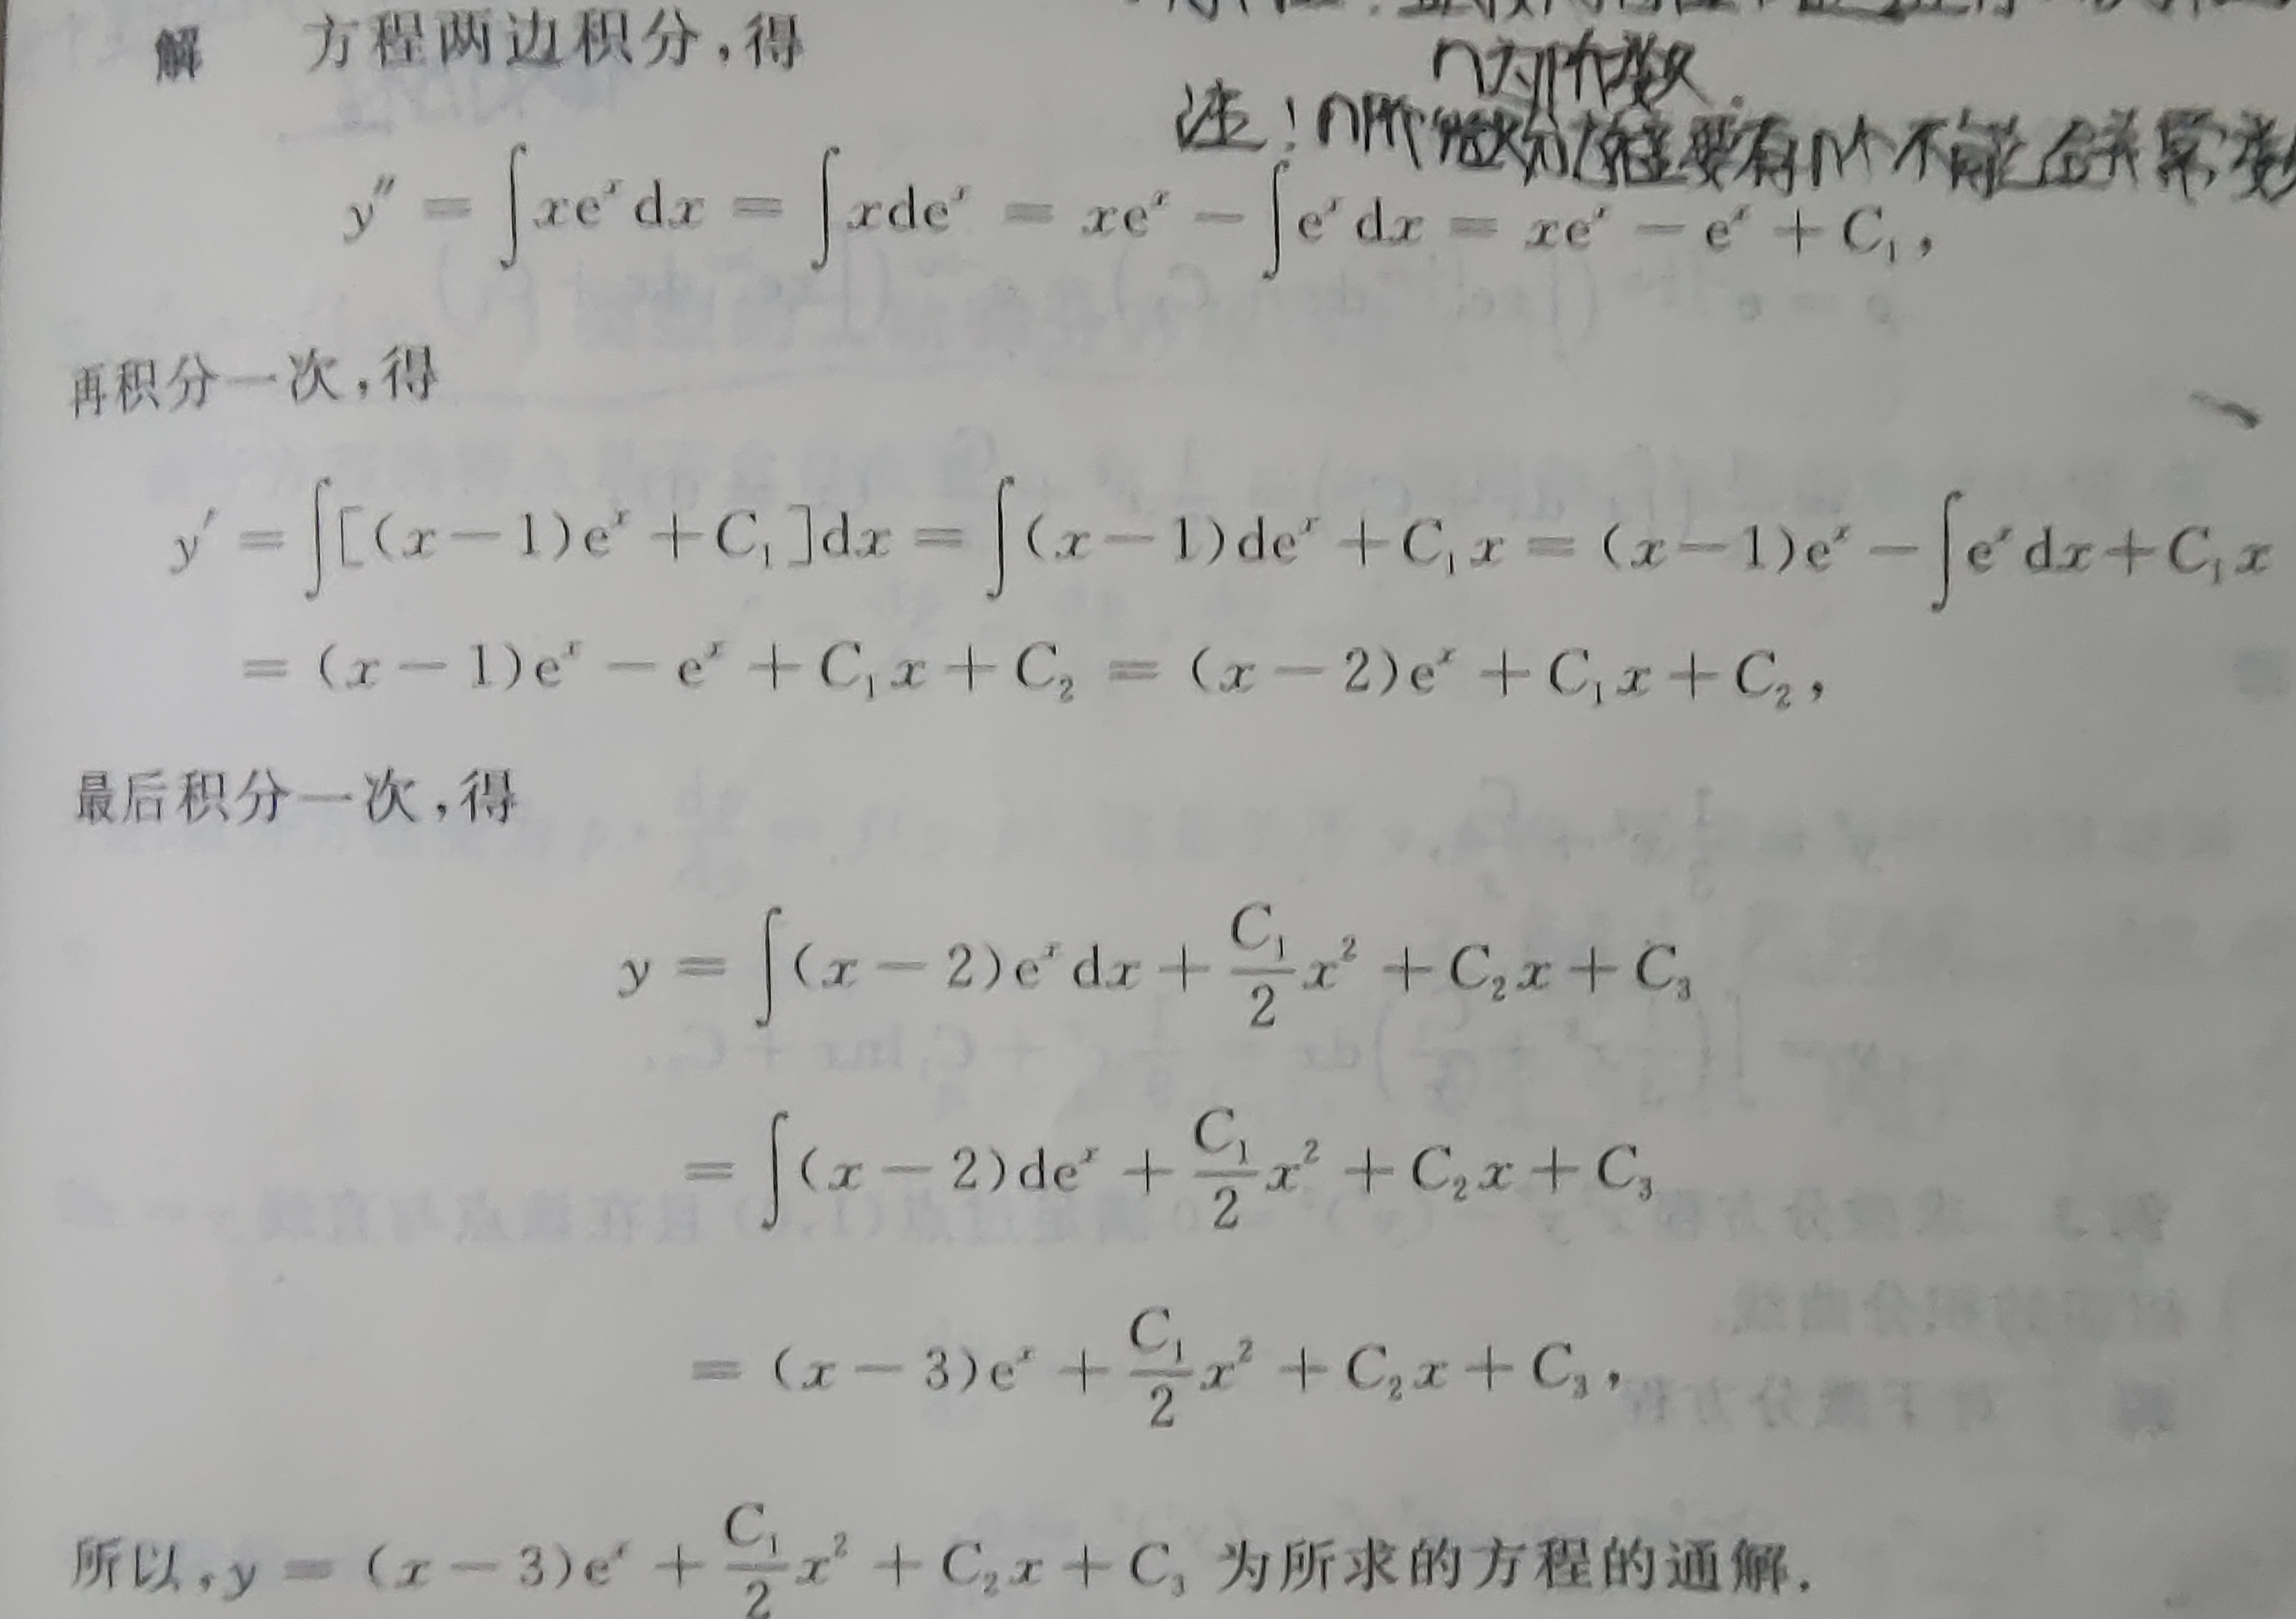 n为阶数.
解 方程两边积分,得
注:n阶微分方程要有n个不能合并常数
y″ = ∫xeˣdx = ∫xdeˣ = xeˣ − ∫eˣdx = xeˣ − eˣ + C₁,
再积分一次,得
y′ = ∫[(x−1)eˣ + C₁]dx = ∫(x−1)deˣ + C₁x = (x−1)eˣ − ∫eˣdx + C₁x
= (x−1)eˣ − eˣ + C₁x + C₂ = (x−2)eˣ + C₁x + C₂,
最后积分一次,得
y = ∫(x−2)eˣdx + C₁/2 x² + C₂x + C₃
= ∫(x−2)deˣ + C₁/2 x² + C₂x + C₃
= (x−3)eˣ + C₁/2 x² + C₂x + C₃,
所以,y = (x−3)eˣ + C₁/2 x² + C₂x + C₃ 为所求的方程的通解.